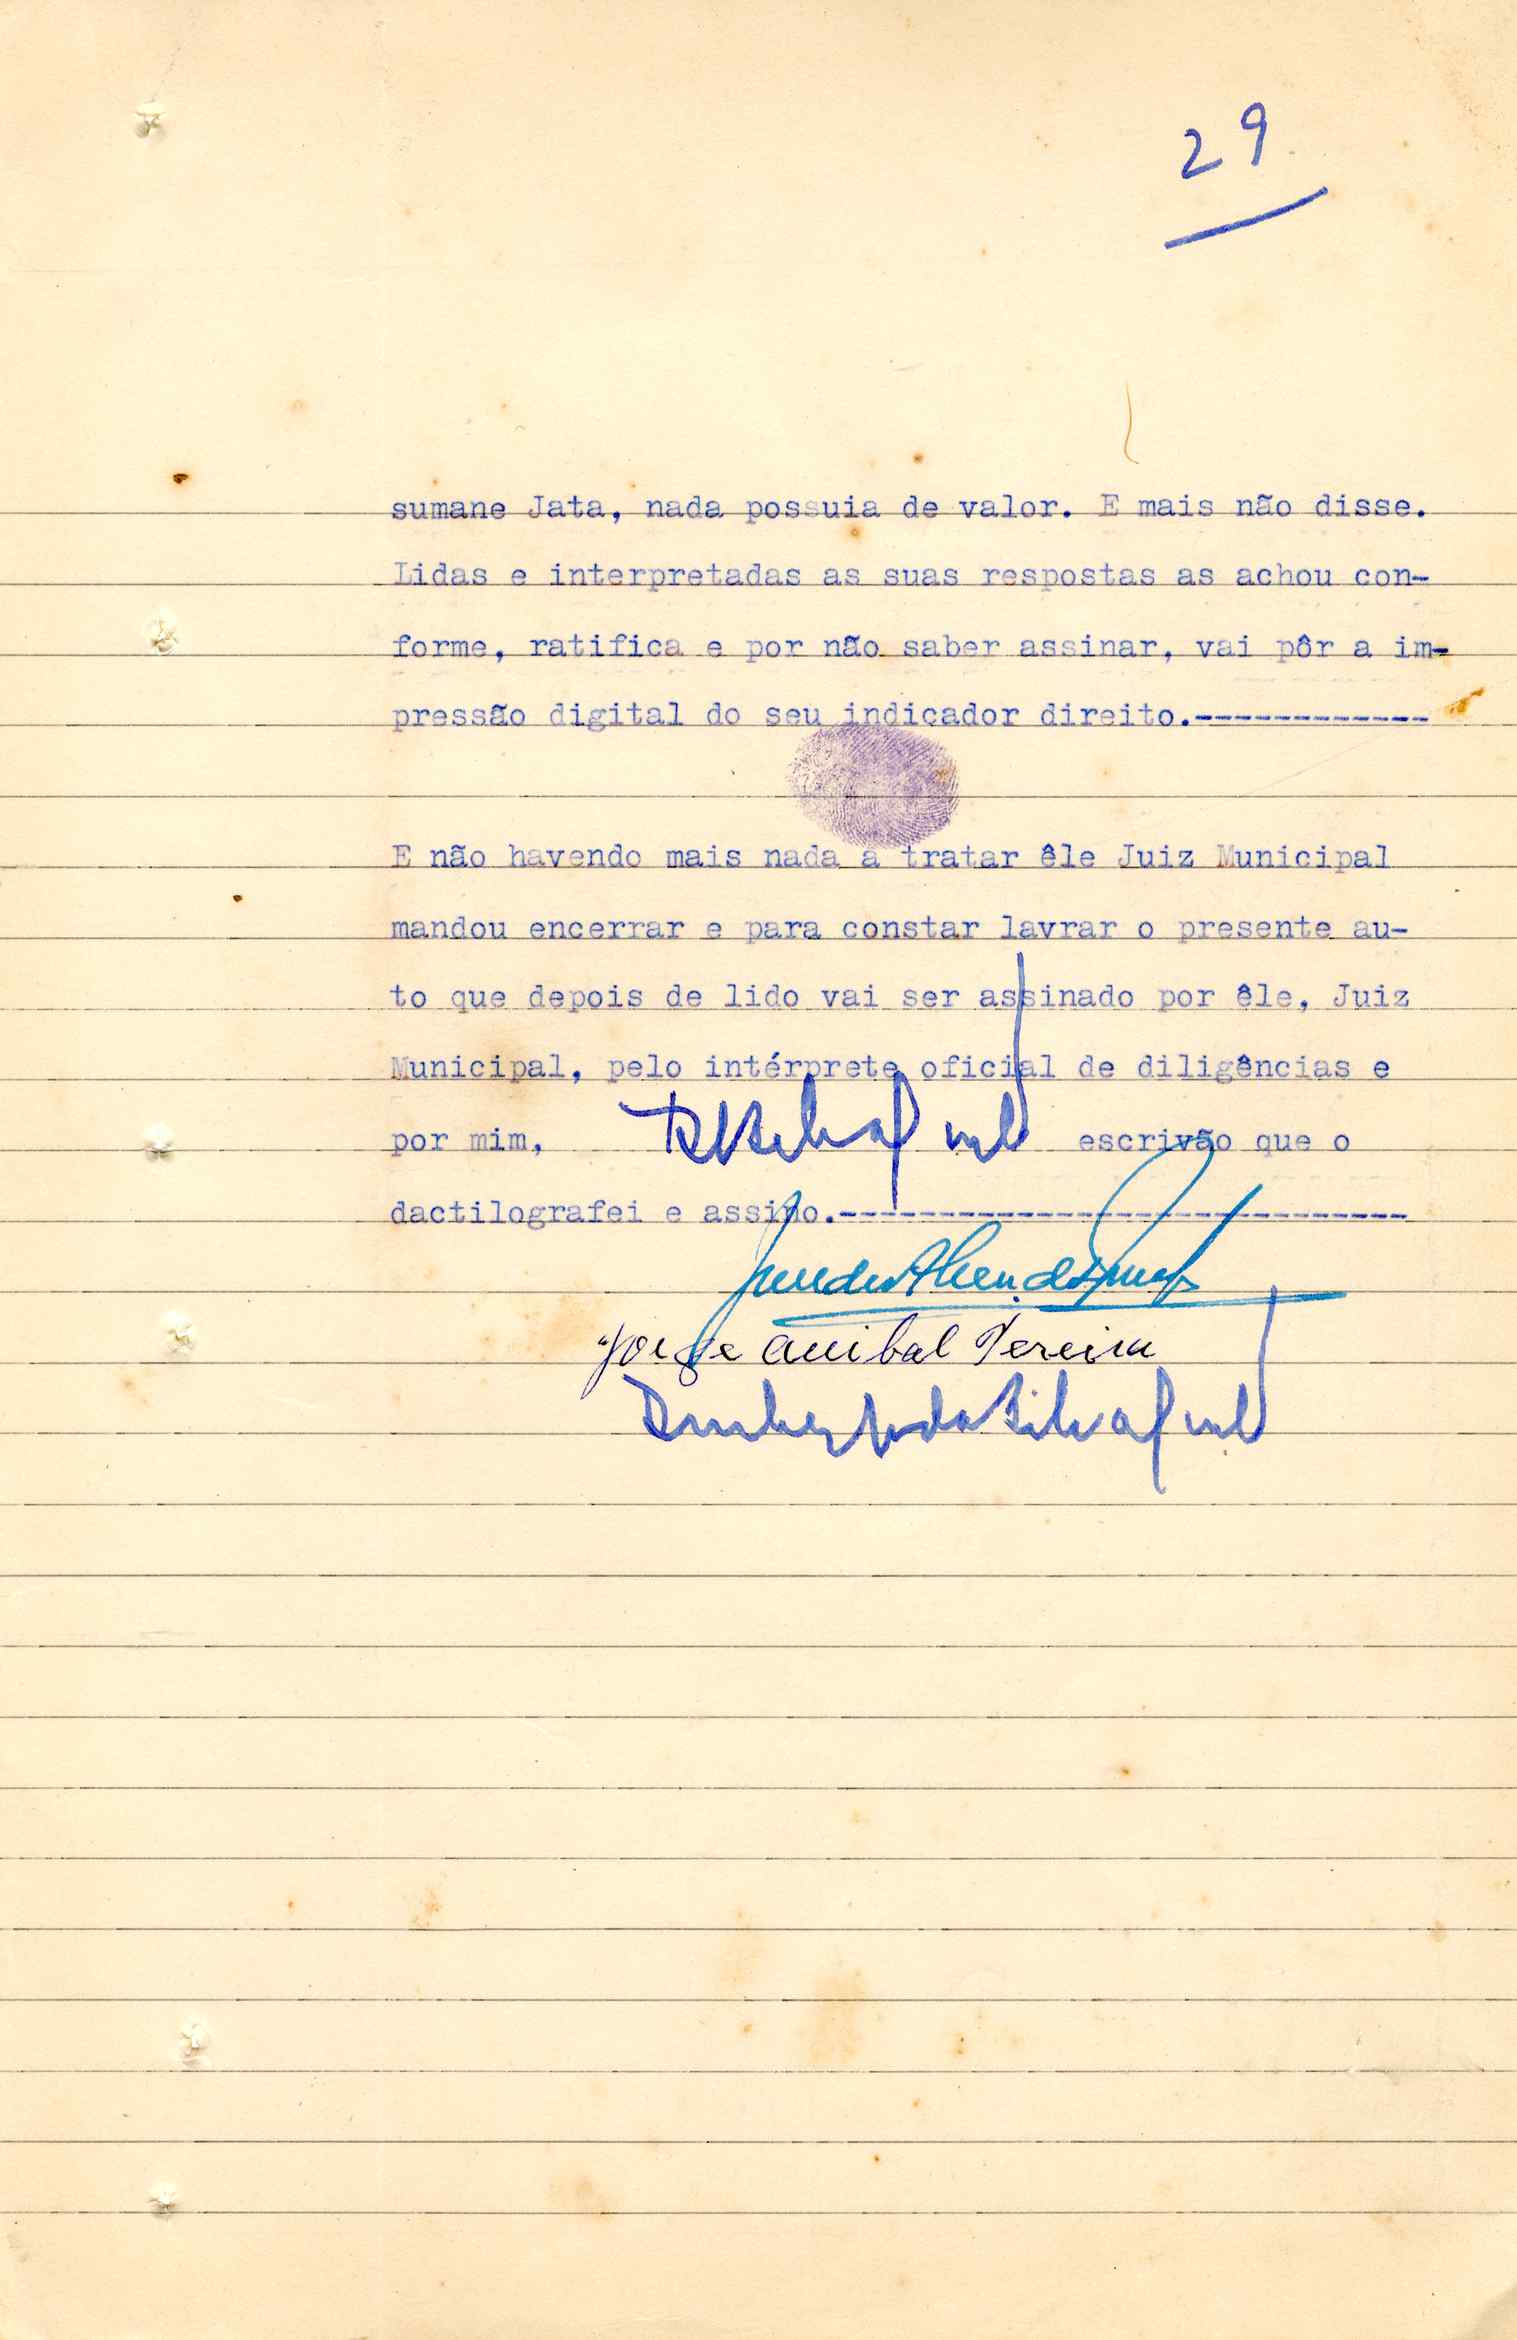 29
sumane Jata, nada possuia de valor. E mais não disse.
Lidas e interpretadas as suas respostas as achou con-
forme, ratifica e por não saber assinar, vai pôr a im-
pressão digital do seu indicador direito.------------
E não havendo mais nada a tratar êle Juiz Municipal
mandou encerrar e para constar lavrar o presente au-
to que depois de lido vai ser assinado por êle, Juiz
Municipal, pelo intérprete oficial de diligências e
por mim, escrivão que o
dactilografei e assino.-----------------------------
Jorge Anibal Pereira
da Silva